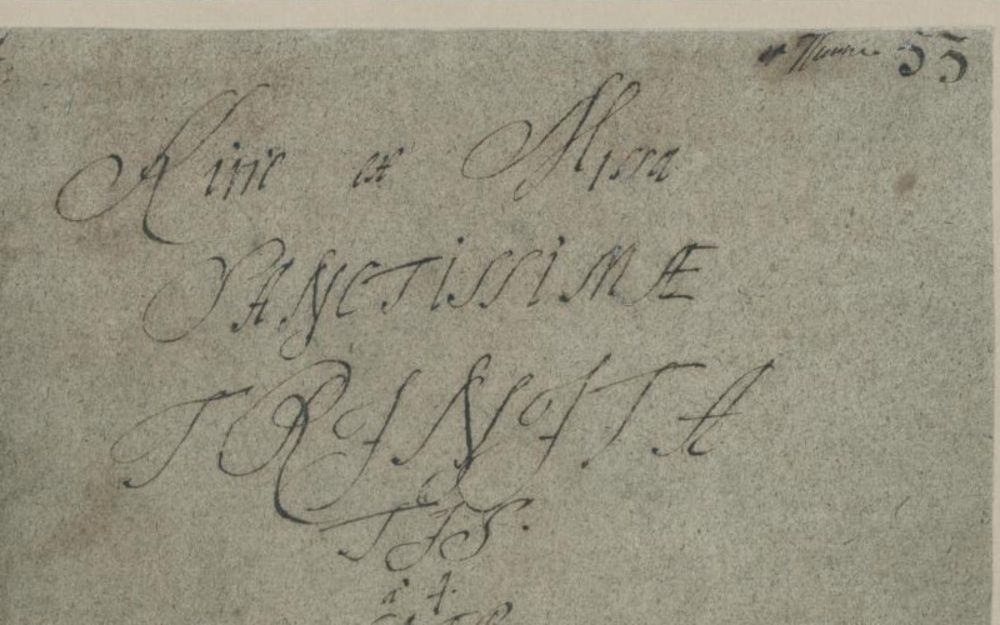 55
Kirie et Missa
SANCTISSIMÆ
TRINITA
TIS.
à 4.